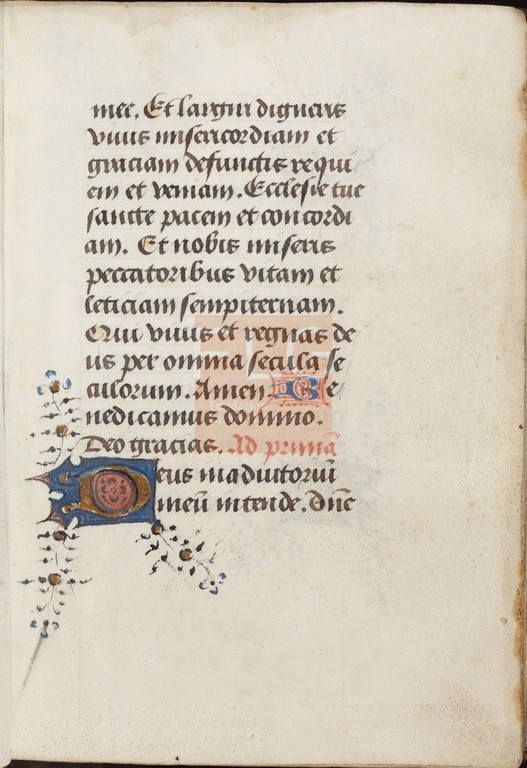 mee. Et largiri digneris
vivis misericordiam et
graciam defunctis requi
em et veniam. Ecclesie tue
sancte pacem et concordi
am. Et nobis miseris
peccatoribus vitam et
leticiam sempiternam.
Qui vivis et regnas de
us per omnia secula se
culorum. Amen. Be
nedicamus domino.
Deo gracias. Ad primā
Deus in adiutoriū
meū intende. Dn̄e